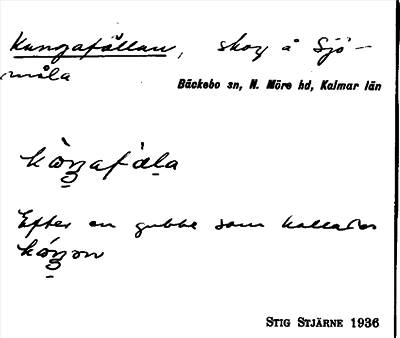 Kungafållan, skog å Sjö-
måla
Bäckebo sn, N. Möre hd, Kalmar län
Efter en gubbe som kallades
STIG STJÄRNE 1936